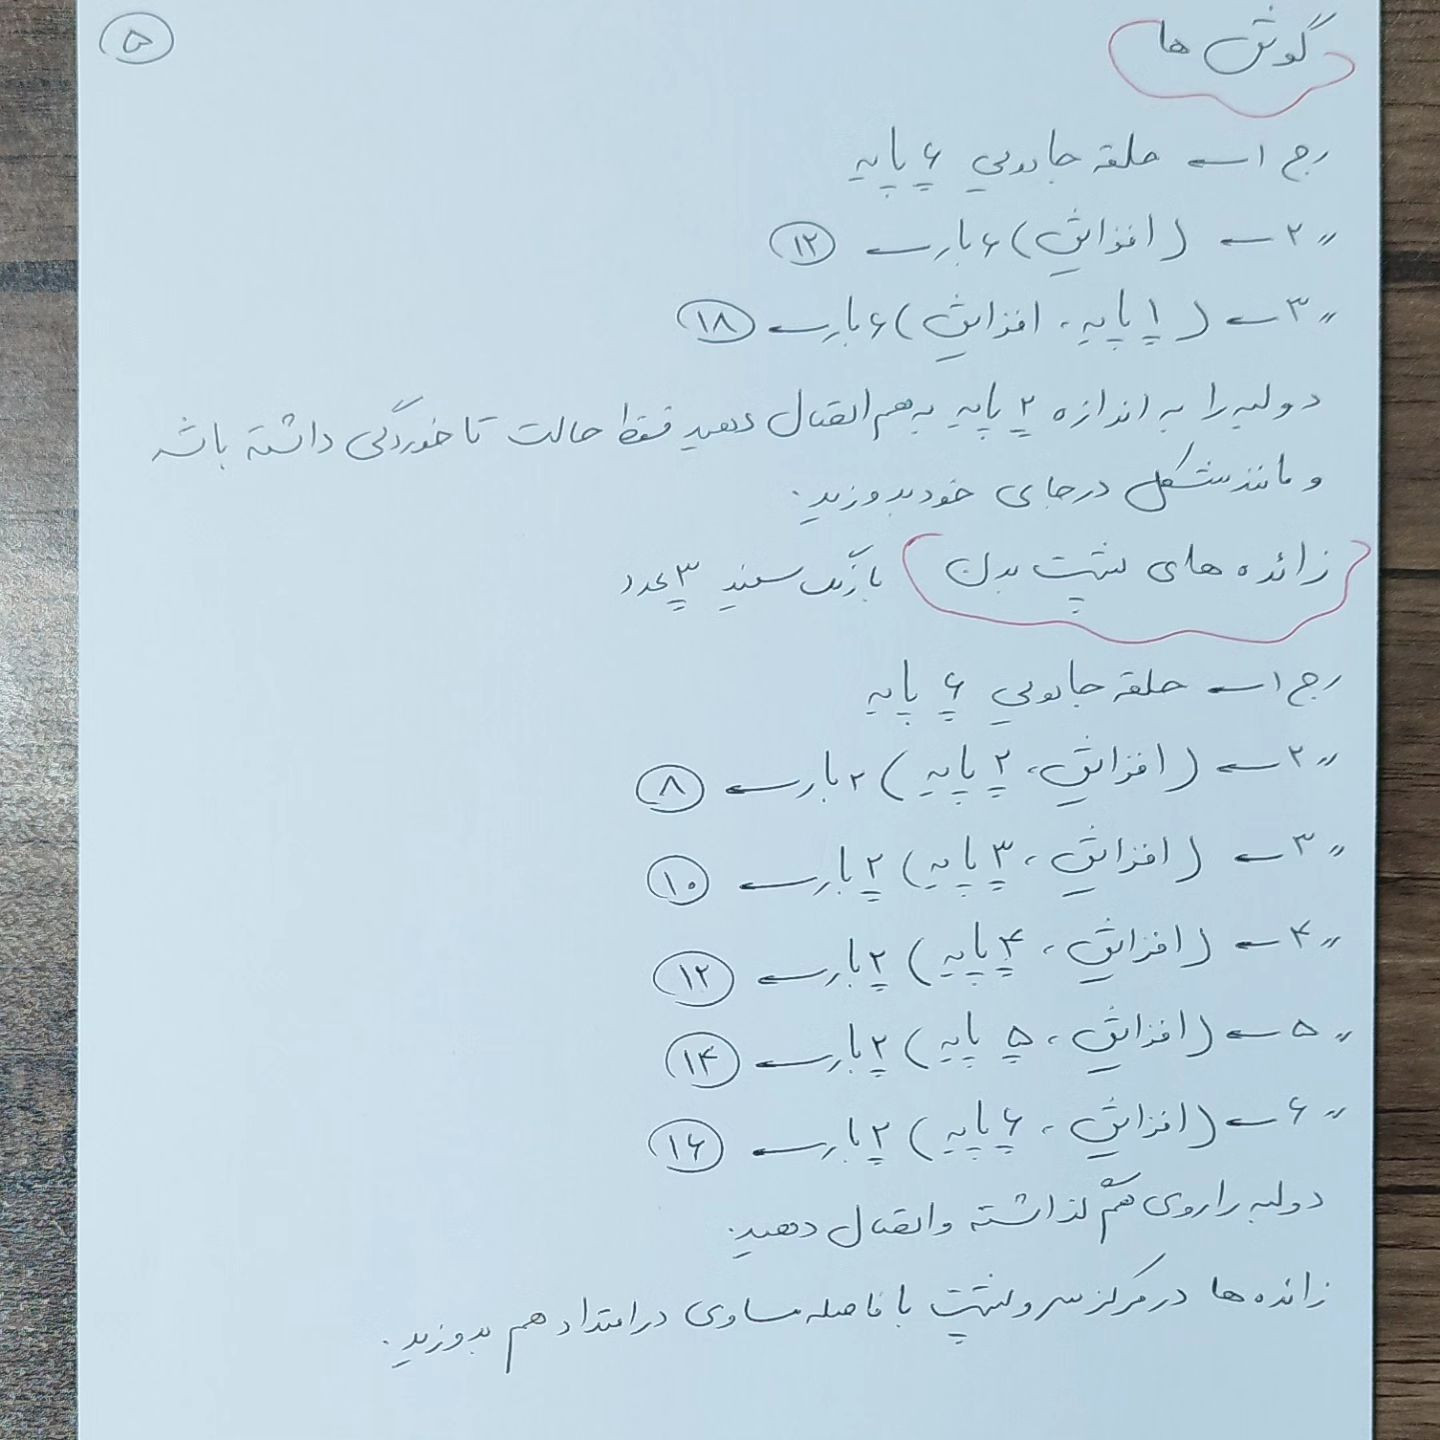 ۵
گوش ها
رج ۱ ← حلقه جادویی ۶ پایه
〃 ۲ ← (افزایش) ۶ بار ← ۱۲
〃 ۳ ← (۱ پایه، افزایش) ۶ بار ← ۱۸
دولبه را به اندازه ۲ پایه به هم اتصال دهید فقط حالت تا خوردگی داشته باشه
و مانند شکل در جای خود بدوزید.
زائده های پشت بدن با رنگ سفید ۳ عدد
رج ۱ ← حلقه جادویی ۶ پایه
〃 ۲ ← (افزایش، ۲ پایه) ۲ بار ← ۸
〃 ۳ ← (افزایش، ۳ پایه) ۲ بار ← ۱۰
〃 ۴ ← (افزایش، ۴ پایه) ۲ بار ← ۱۲
〃 ۵ ← (افزایش، ۵ پایه) ۲ بار ← ۱۴
〃 ۶ ← (افزایش، ۶ پایه) ۲ بار ← ۱۶
دولبه را روی هم گذاشته و اتصال دهید.
زائده ها در مرکز سر و پشت با فاصله مساوی در امتداد هم بدوزید.